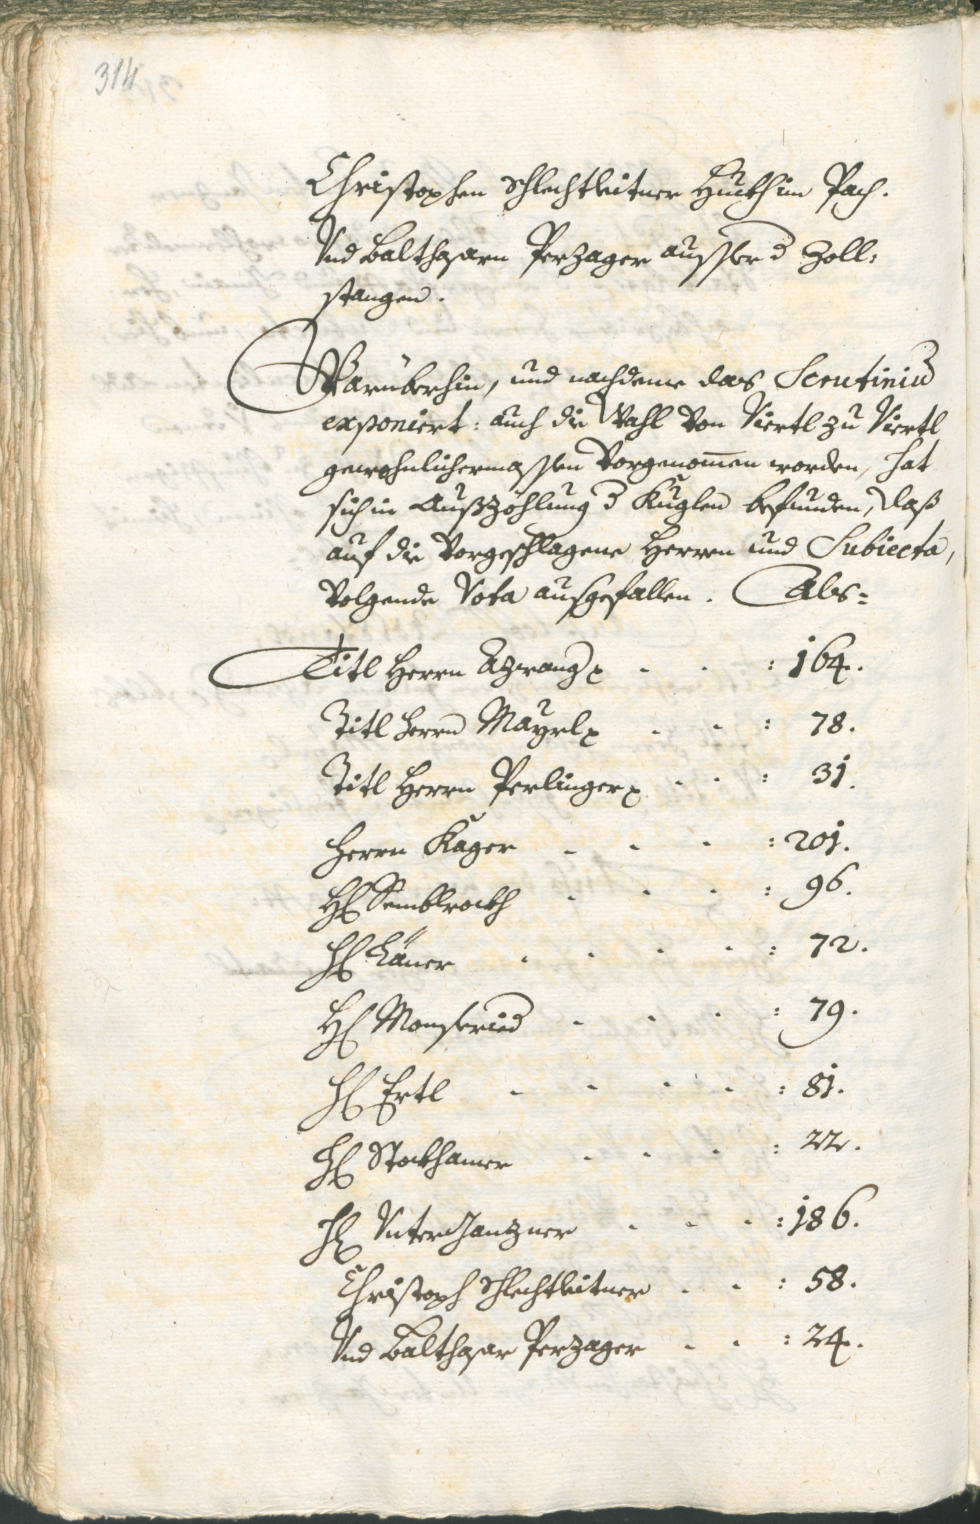 314
Christophen Schlechtleitner Hueth im Pach.
Vnd Balthasarn Perzager ausser d Zoll:
stangen.
Warüberhin, und nachdeme das Scrutiniu
exponiert: auch die Wahl von Viertl zu Viertl
gewohnlichermassen vorgenom̅en worden, hat
sich in Außzöhlung d Kuglen befunden, daß
auf die vorgeschlagene Herren und Subiecta,
volgende Vota ausgefallen. Als=
Titl Herrn Azwang - - : 164.
Titl Herrn Mayrl - - : 78.
Titl Herrn Perlinger - - : 31.
Herrn Kager - - - : 201.
H Semblrockh - - - : 96.
H Läner - - - - : 72.
H Monsfried - - - : 79.
H Ertl - - - - : 81.
H Stockhamer - - - : 22.
H Vnterdantzner - - - : 186.
Christoph Schlechtleitner - - : 58.
Vnd Balthasar Perzager - - : 24.